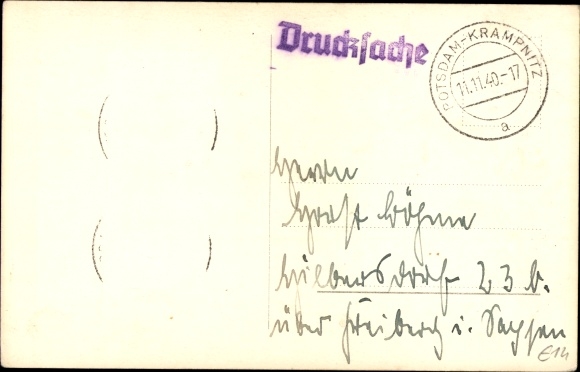 Drucksache
POTSDAM-KRAMPNITZ
11.11.40.-17
a
Herrn
Horst Böhme
Hilbersdorf 23 b.
über Freiberg i. Sachsen
E14